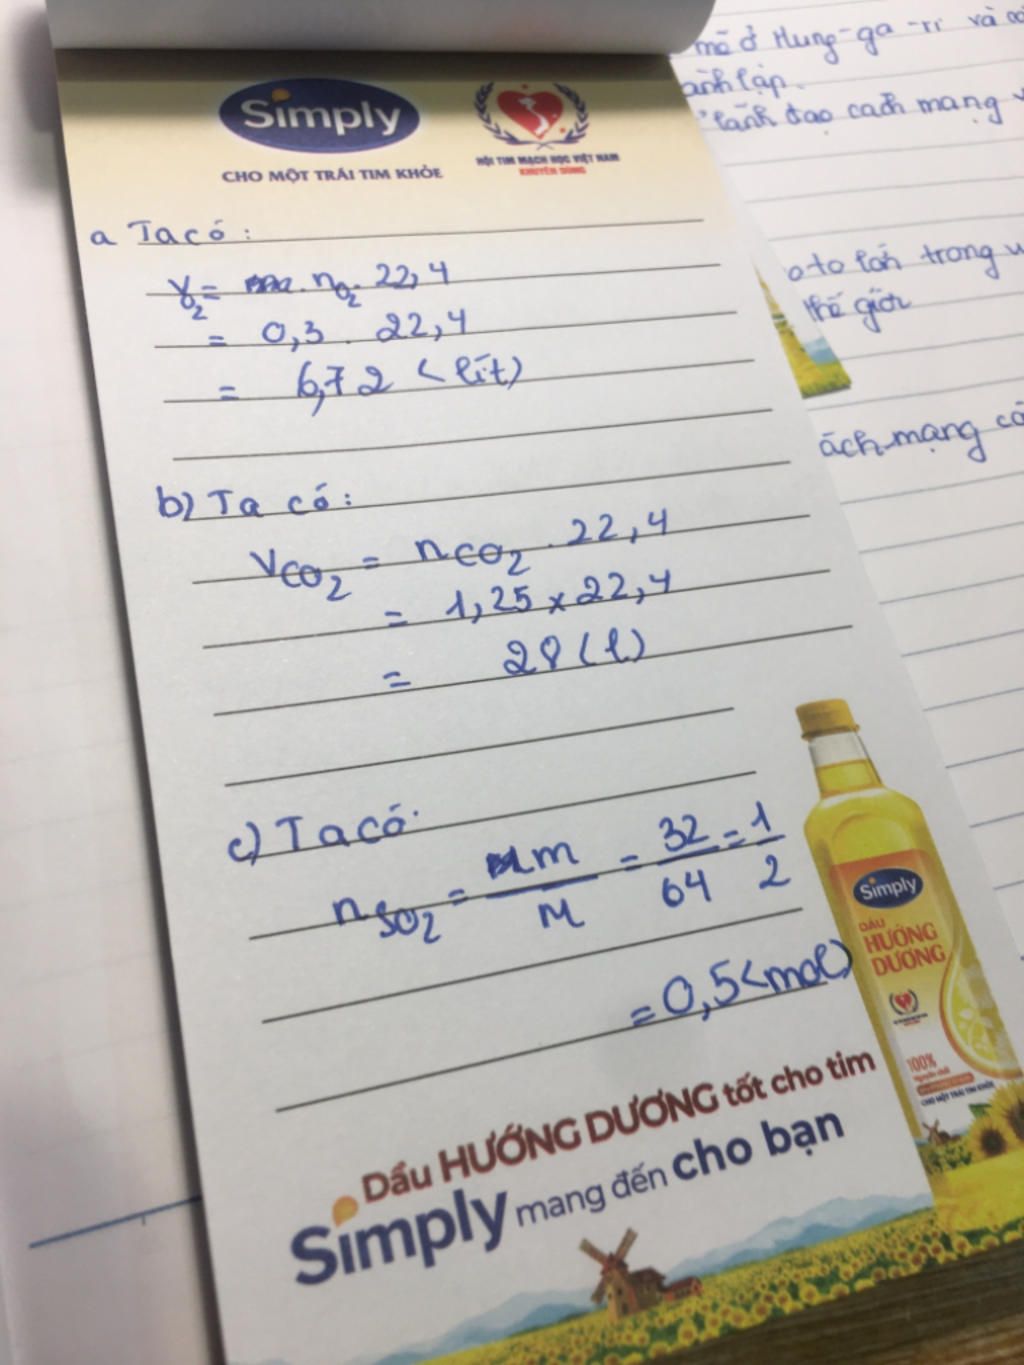 Simply
CHO MỘT TRÁI TIM KHỎE
HỘI TIM MẠCH HỌC VIỆT NAM
KHUYÊN DÙNG
a Ta có:
V O2 = n O2 . 22,4
= 0,3 . 22,4
= 6,72 (lít)
b) Ta có:
V CO2 = n CO2 . 22,4
= 1,25 x 22,4
= 28 (l)
c) Ta có:
n SO2 = m/M = 32/64 = 1/2
= 0,5 (mol)
Simply
DẦU
HƯỚNG
DƯƠNG
100%
CHO MỘT TRÁI TIM KHỎE
Dầu HƯỚNG DƯƠNG tốt cho tim
Simply mang đến cho bạn
mê ở Hung-ga-ri và
lãnh đạo cách mạng
lớn trong
thế giới
ách mạng